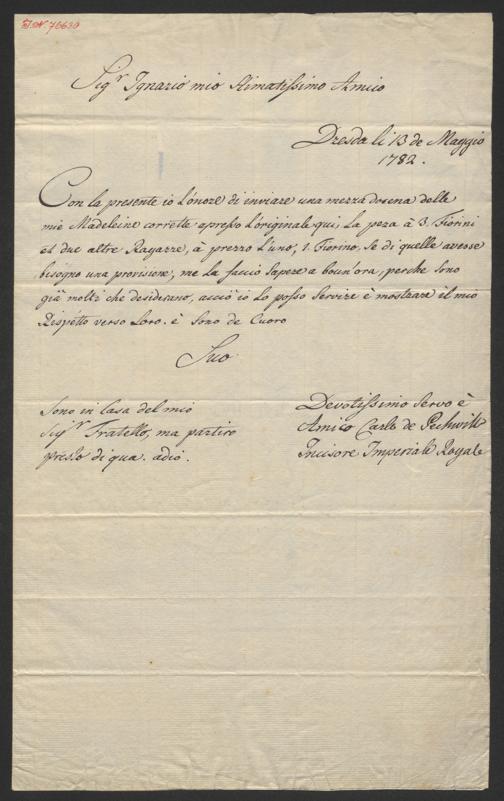 I.N. 76630
Sig.r Ignazio mio Stimatissimo Amico
Dresda li 13 de Maggio
1782.
Con la presente io L'onore di inviare una mezza dosena delle
mie Madeleine corrette apresso L'originale qui, La peza à 3. Fiorini
et due altre Ragazze, à prezzo L'uno, 1. Fiorino, Se di quelle avesse
bisogno una provisione, me La faccio Sapere a boun'ora, perche Sono
già molti che desiderano, acciò io Lo posso Servire è mostrare il mio
Rispetto verso Loro. è Sono de Cuoro
Suo
Sono in Casa del mio
Sig.r Fratello, ma partiro
presto di qua. adio.
Devotissimo Servo è
Amico Carlo de Pechwill
Incisore Imperiale Royale